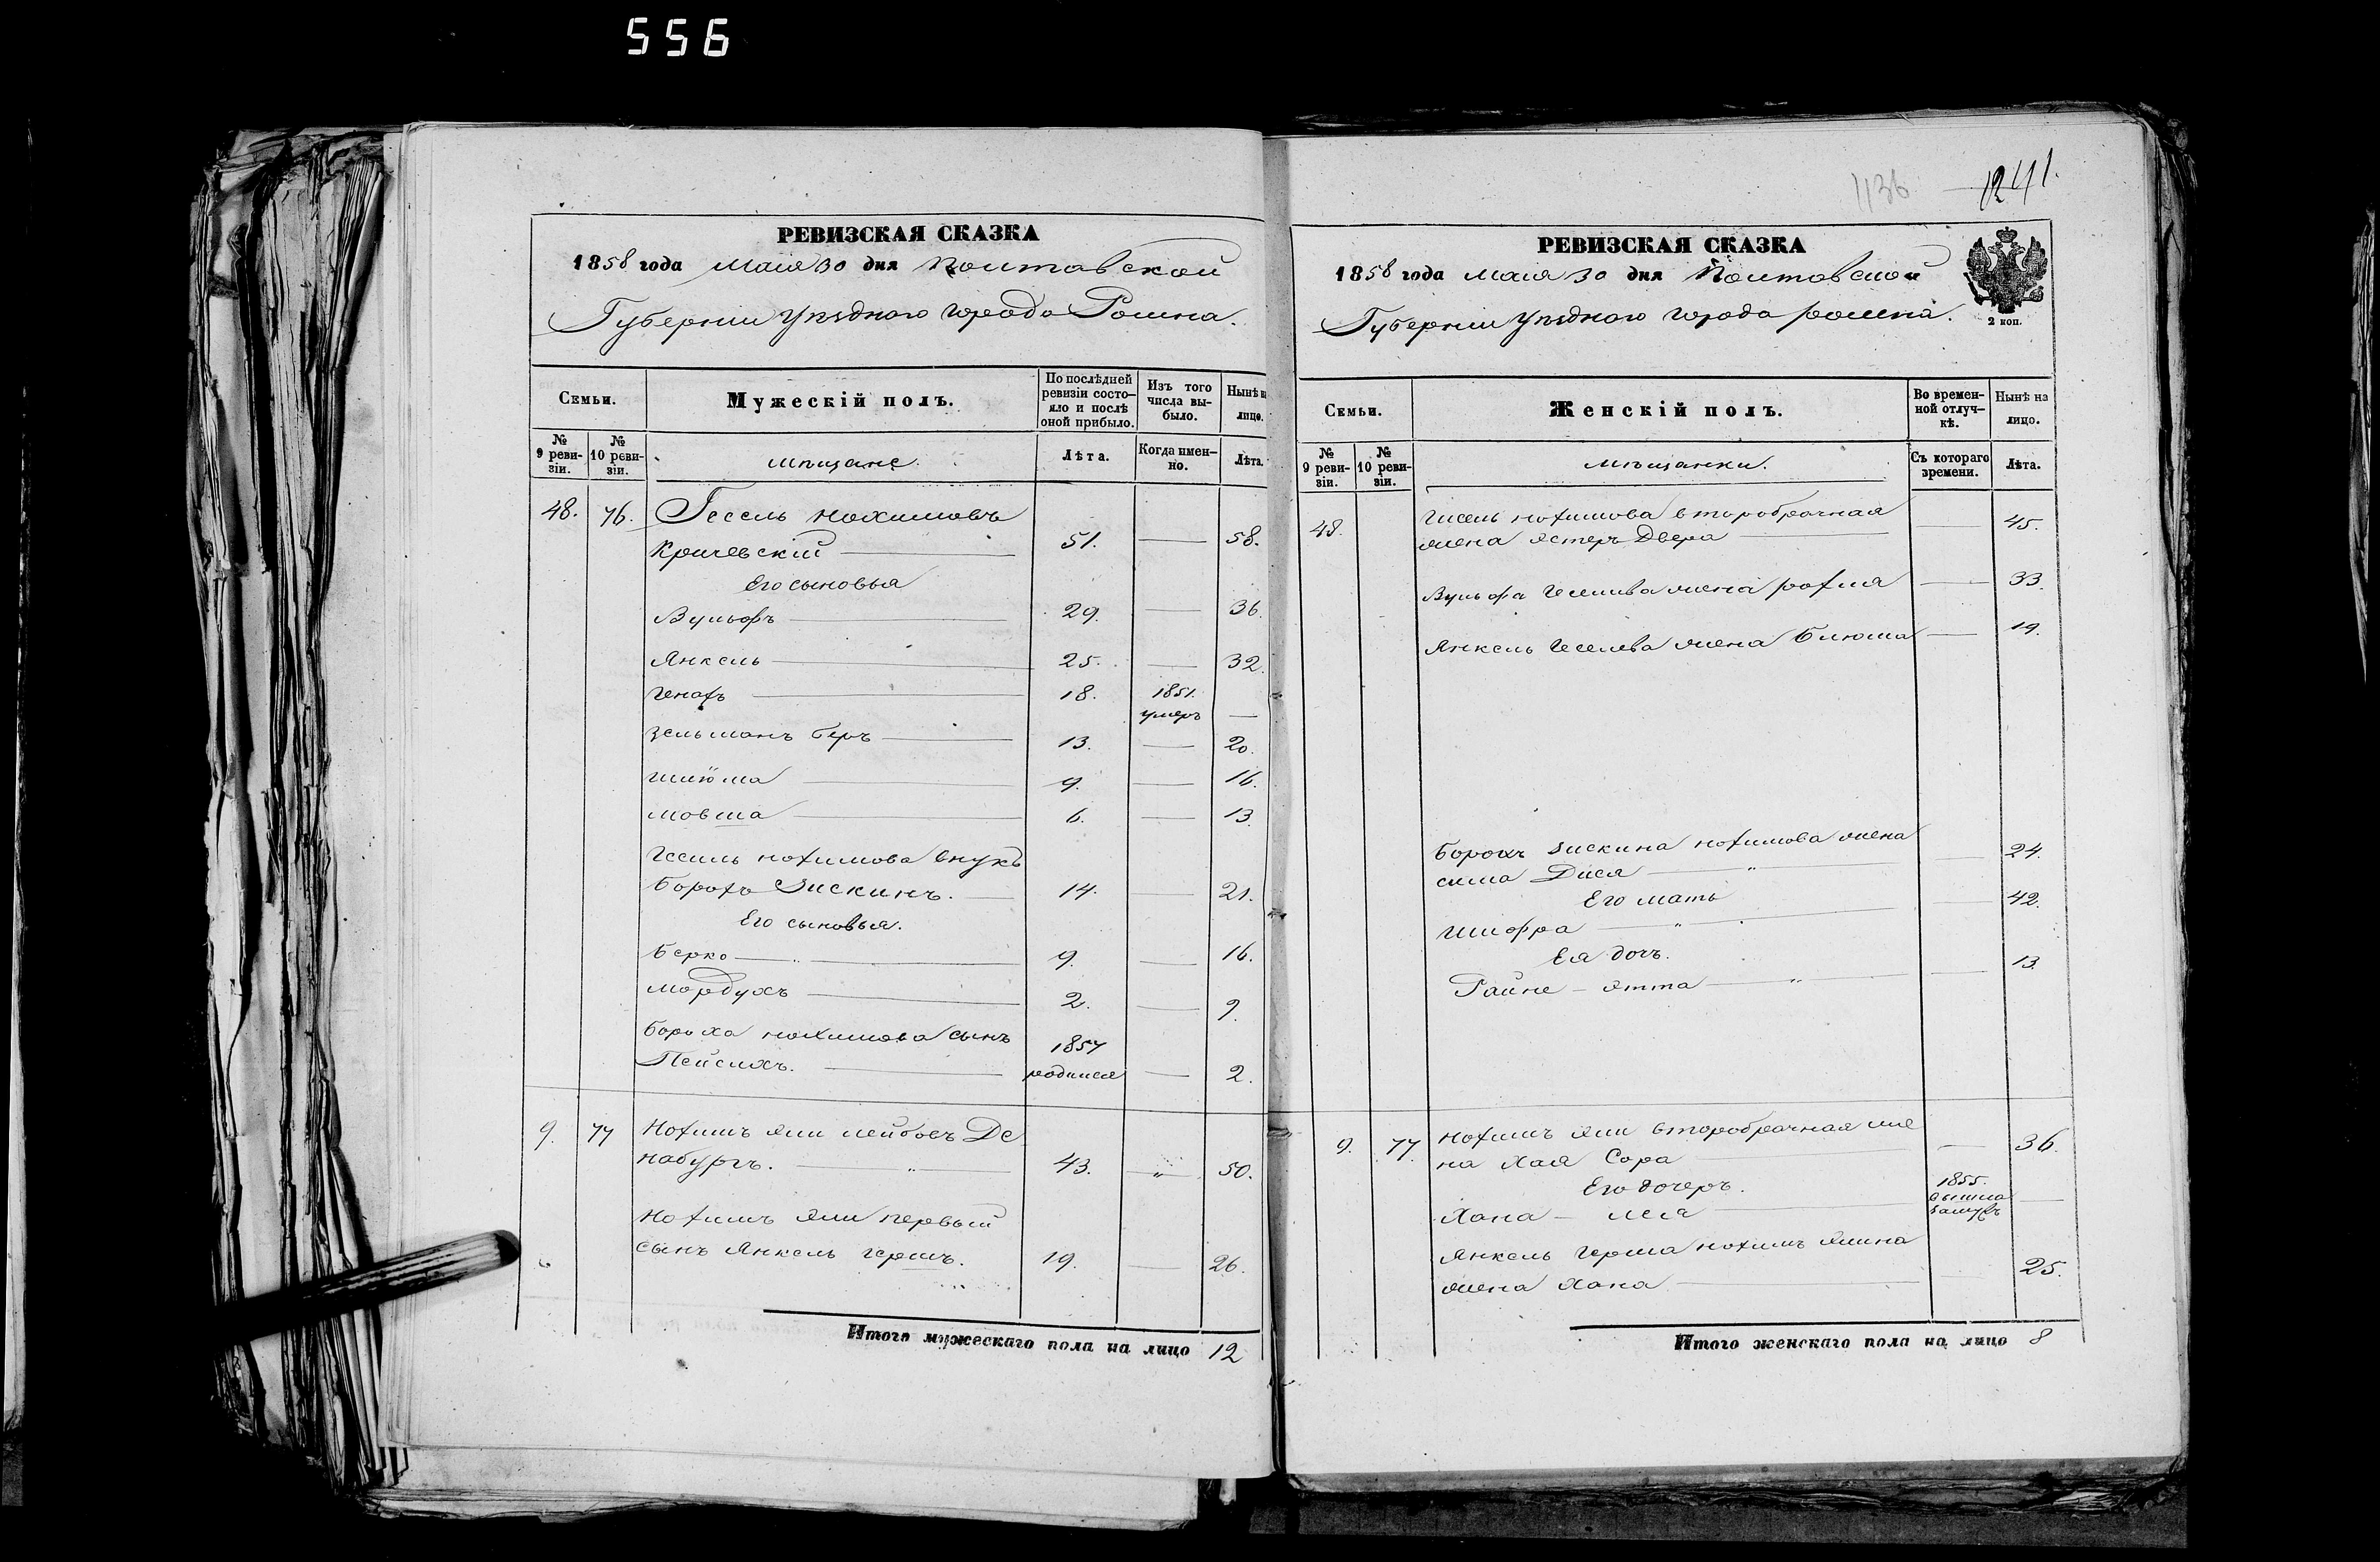 556
РЕВИЗСКАЯ СКАЗКА
1858 года маія 30 дня Полтавской
Губерніи уѣзднаго города Ромна.
Семьи.
Мужескій полъ.
По послѣдней ревизіи состо-
яло и послѣ оной прибыло.
Изъ того числа вы-
было.
Нынѣ на лицо.
№ 9 реви-
зіи.
№ 10 реви-
зіи.
мѣщане.
Лѣта.
Когда имен-
но.
Лѣта.
48. 76. Гесель Нохимовъ
Кричевскій 51. 58.
Его сыновья
Вульфъ 29. 36.
Янкель 25. 32.
Генахъ 18. 1851. умеръ
Зельманъ Беръ 13. 20.
Шлюма 9. 16.
Мовша 6. 13.
Гесиль Нохимова внукъ
Борохъ Зискинъ. 14. 21.
Его сыновья.
Берко 9. 16.
Мордухъ 2. 9.
Бороха Нохимова сынъ
Пейсихъ. 1857 родился 2.
9. 77 Нохимъ Эли Лейбовъ Де
набургъ. 43. " 50.
Нохимъ Эли первый
сынъ Янкель Гершъ. 19. 26.
Итого мужескаго пола на лицо 12
1136 1241.
РЕВИЗСКАЯ СКАЗКА
1858 года маія 30 дня Полтавской
Губерніи уѣзднаго города Ромна.
2 коп.
Семьи.
Женскій полъ.
Во времен-
ной отлуч-
кѣ.
Нынѣ на лицо.
№ 9 реви-
зіи.
№ 10 реви-
зіи.
мѣщанки.
Съ котораго времени.
Лѣта.
48. Гисель Нохимова второбрачная
жена Эстеръ Двера 45.
Вульфа Геселива жена Рохля 33.
Янкель Геселева жена Блюма 19.
Борохъ Зискина Нохимова жена
Сима Дися " 24.
Его мать
Шифра " 42.
Ея дочь.
Райне - Этта " 13.
9. 77. Нохимъ Эли второбрачная же
на Хая Сора 36.
Его дочерь.
Хана - Лея 1855. вышла замужъ
Янкель Герша Нохимъ Элина
жена Хана 25.
Итого женскаго пола на лицо 8